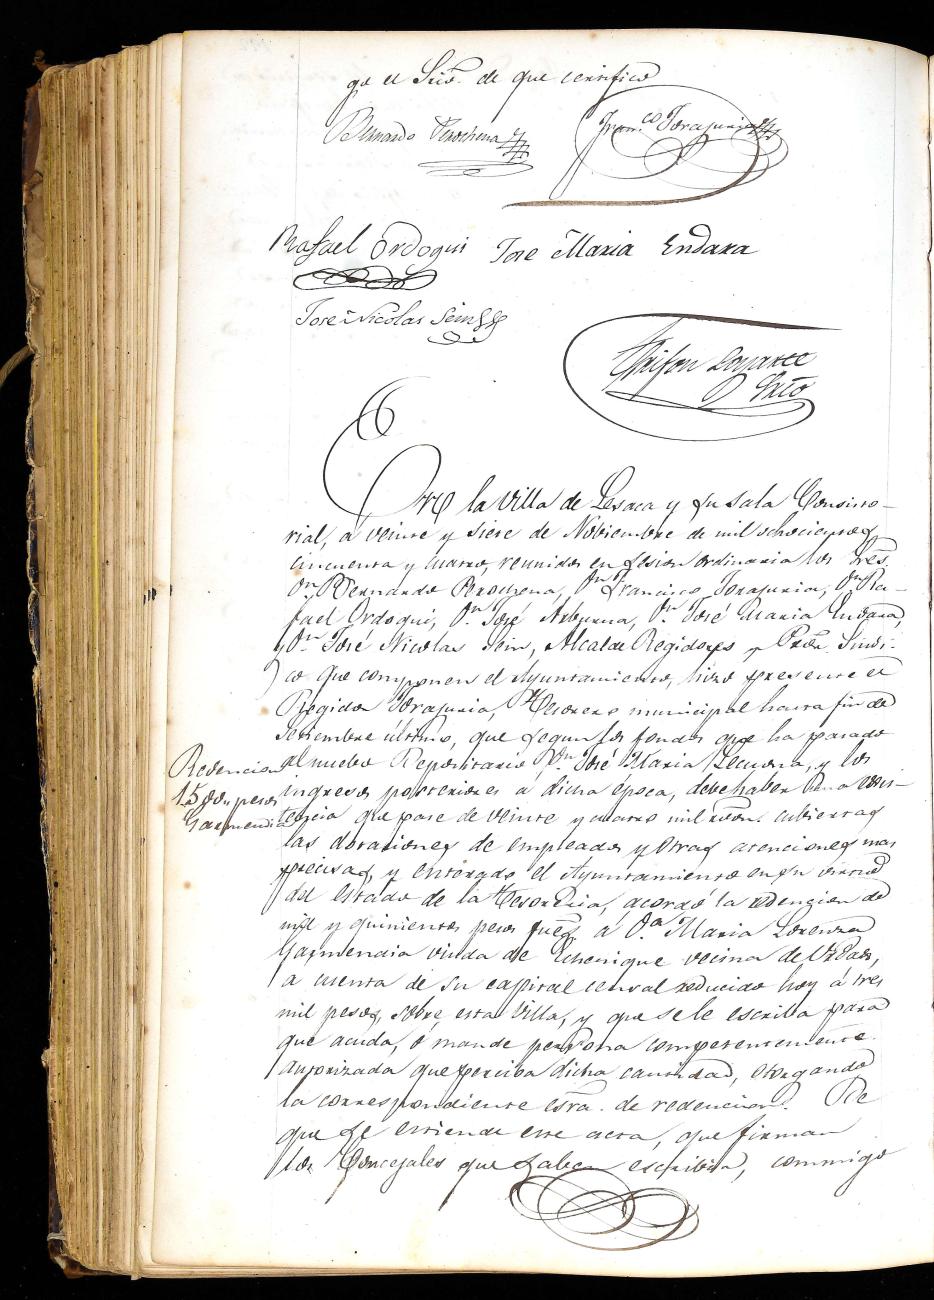 go el Srio. de que certifico
Bernardo Perochena
Fran.co Torajuria
Rafael Ordoqui Jose Maria Endara
Jose Nicolas Sein
Loyarte
Srio
En la Villa de Lesaca y su Sala Consisto-
rial, a veinte y siete de Nobiembre de mil ochocientos
cincuenta y cuatro, reunidos en sesion ordinaria los Sres
Dn. Bernardo Perochena, Dn. Francisco Torajuria, Dn. Ra-
fael Ordoqui, Dn. José Arburua, Dn. José Maria Endara,
y Dn. José Nicolas Sein, Alcalde Regidores y Pror. Sindi-
co que componen el Ayuntamiento, hizo presente el
Regidor Torajuria, Tesorero municipal hasta fin de
Setiembre último, que segun los fondos que ha pasado
al nuebo Repositario Dn. José Maria Lecuona, y los
Redencion
15 00, pesos
Garmendia
ingresos posteriores a dicha época, debe haber una exis-
tencia que pase de veinte y cuatro mil rvon. cubiertas
las dotaciones de empleados y otras atenciones mas
precisas, y enterado el Ayuntamiento en su virtud
del estado de la Tesoreria, acordó la redencion de
mil y quinientos pesos ftes. á Da. Maria Lorenza
Garmendia viuda de Echenique vecina de Urdax,
a cuenta de su capital censal reducido hoy á tres
mil pesos, sobre esta Villa, y que se le escriba para
que acuda, ó mande persona competentemente
autorizada que perciba dicha cantidad, otorgando
la correspondiente esra. de redencion. De
que se estiende este acta, que firman
los Concejales que saben escribir, conmigo